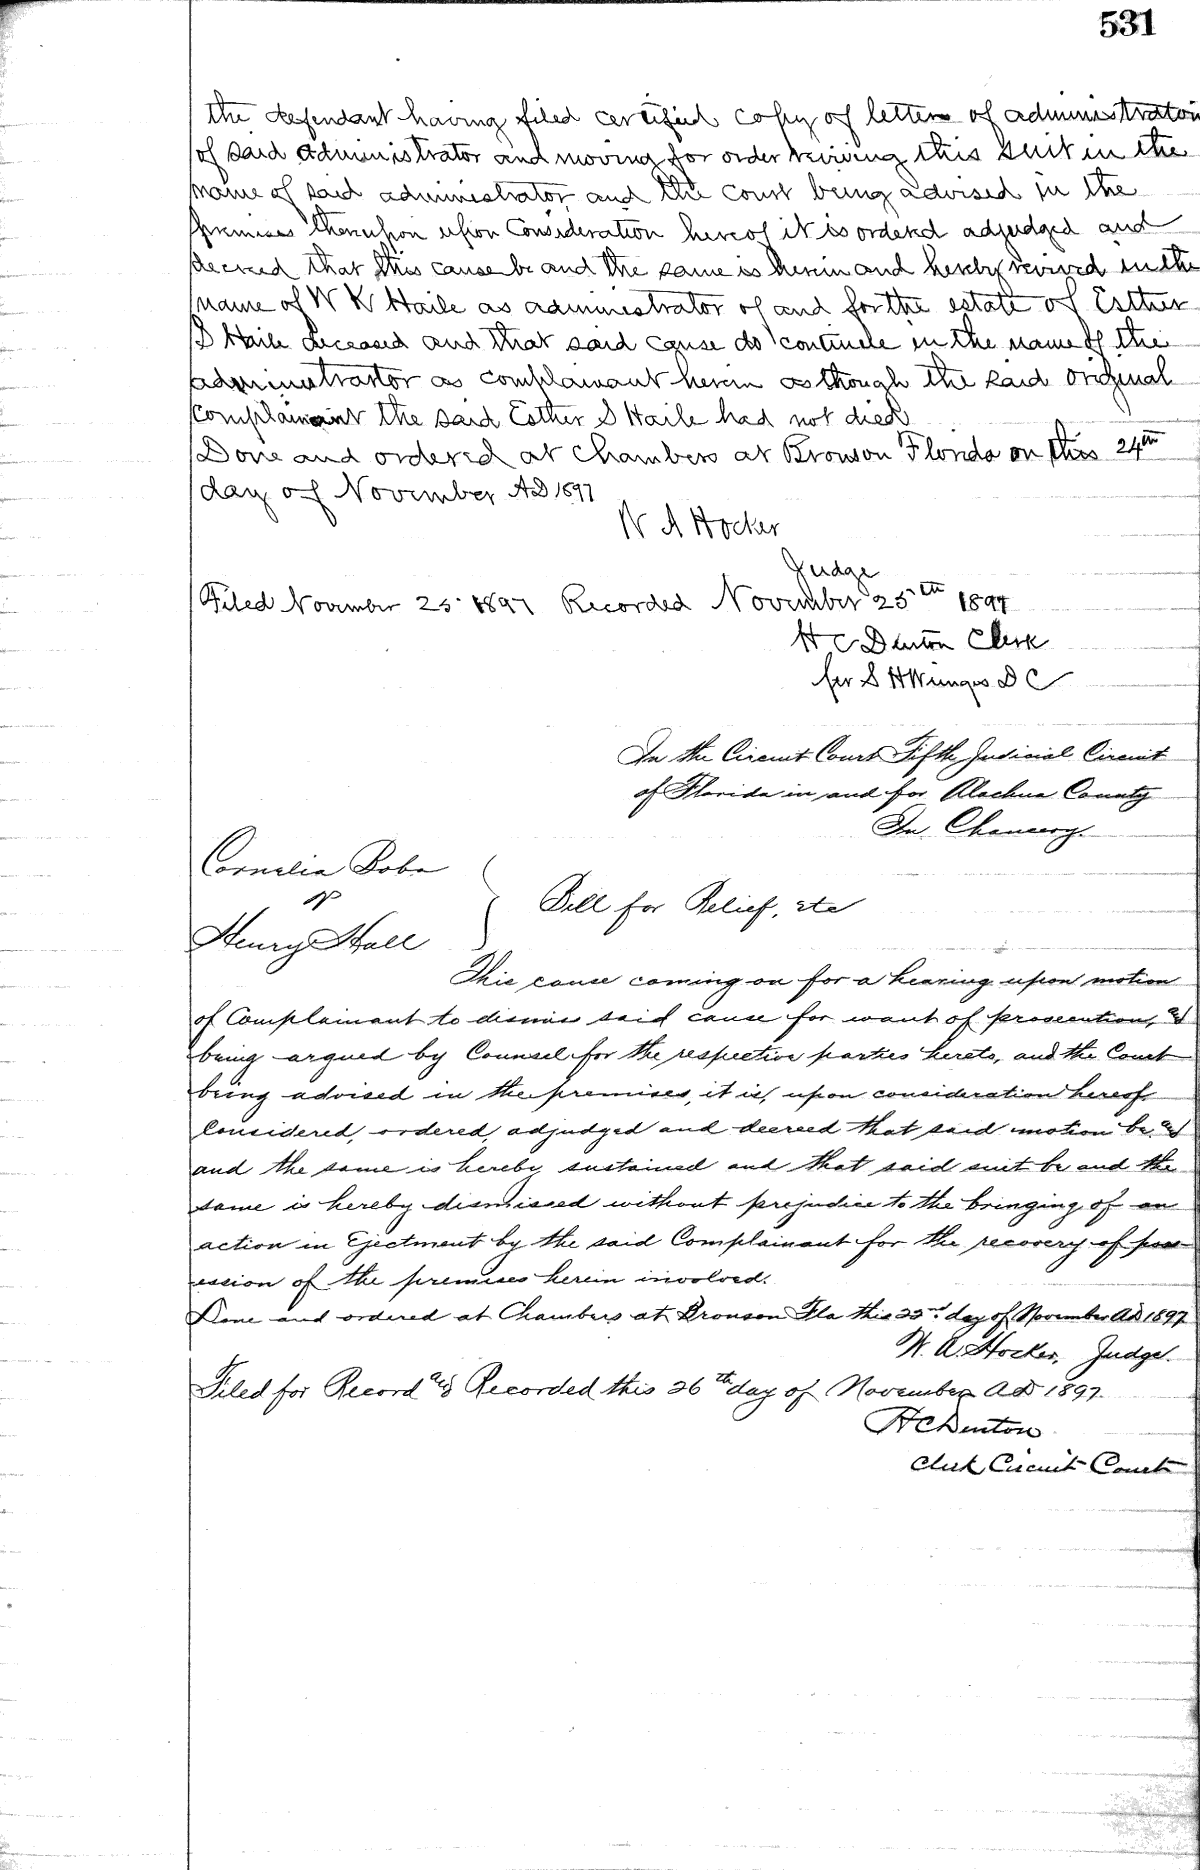 531
the defendant having filed certified copy of letters of administration
of said administrator and moving for order reviving this suit in the
name of said administrator and the court being advised in the
premises thereupon upon Consideration hereof it is ordered adjudged and
decreed that this cause be and the same is herein and hereby revived in the
name of W K Haile as administrator of and for the estate of Esther
S Haile deceased and that said cause do continue in the name of the
administrator as complainant herein as though the said original
Complainant the said Esther S Haile had not died
Done and ordered at Chambers at Bronson Florida on this 24th
day of November AD 1897
W A Hocker
Judge
Filed November 25 1897 Recorded November 25th 1897
H C Denton Clerk
per S H Wienges D C
In the Circuit Court Fifth Judicial Circuit
of Florida in and for Alachua County
In Chancery.
Cornelia
vs
Henry Hall
Bill for Relief, etc
This cause coming on for a hearing upon motion
of Complainant to dismiss said cause for want of prosecution, &
being argued by Counsel for the respective parties hereto, and the Court
being advised in the premises, it is, upon consideration hereof
Considered, ordered, adjudged and decreed that said motion be &
and the same is hereby sustained and that said suit be and the
same is hereby dismissed without prejudice to the bringing of an
action in Ejectment by the said Complainant for the recovery of poss
ession of the premises herein involved.
Done and ordered at Chambers at Bronson Fla this 23rd day of November AD 1897
W. A. Hocker, Judge.
Filed for Record and Recorded this 26th day of November AD 1897.
H C Denton
Clerk Circuit Court